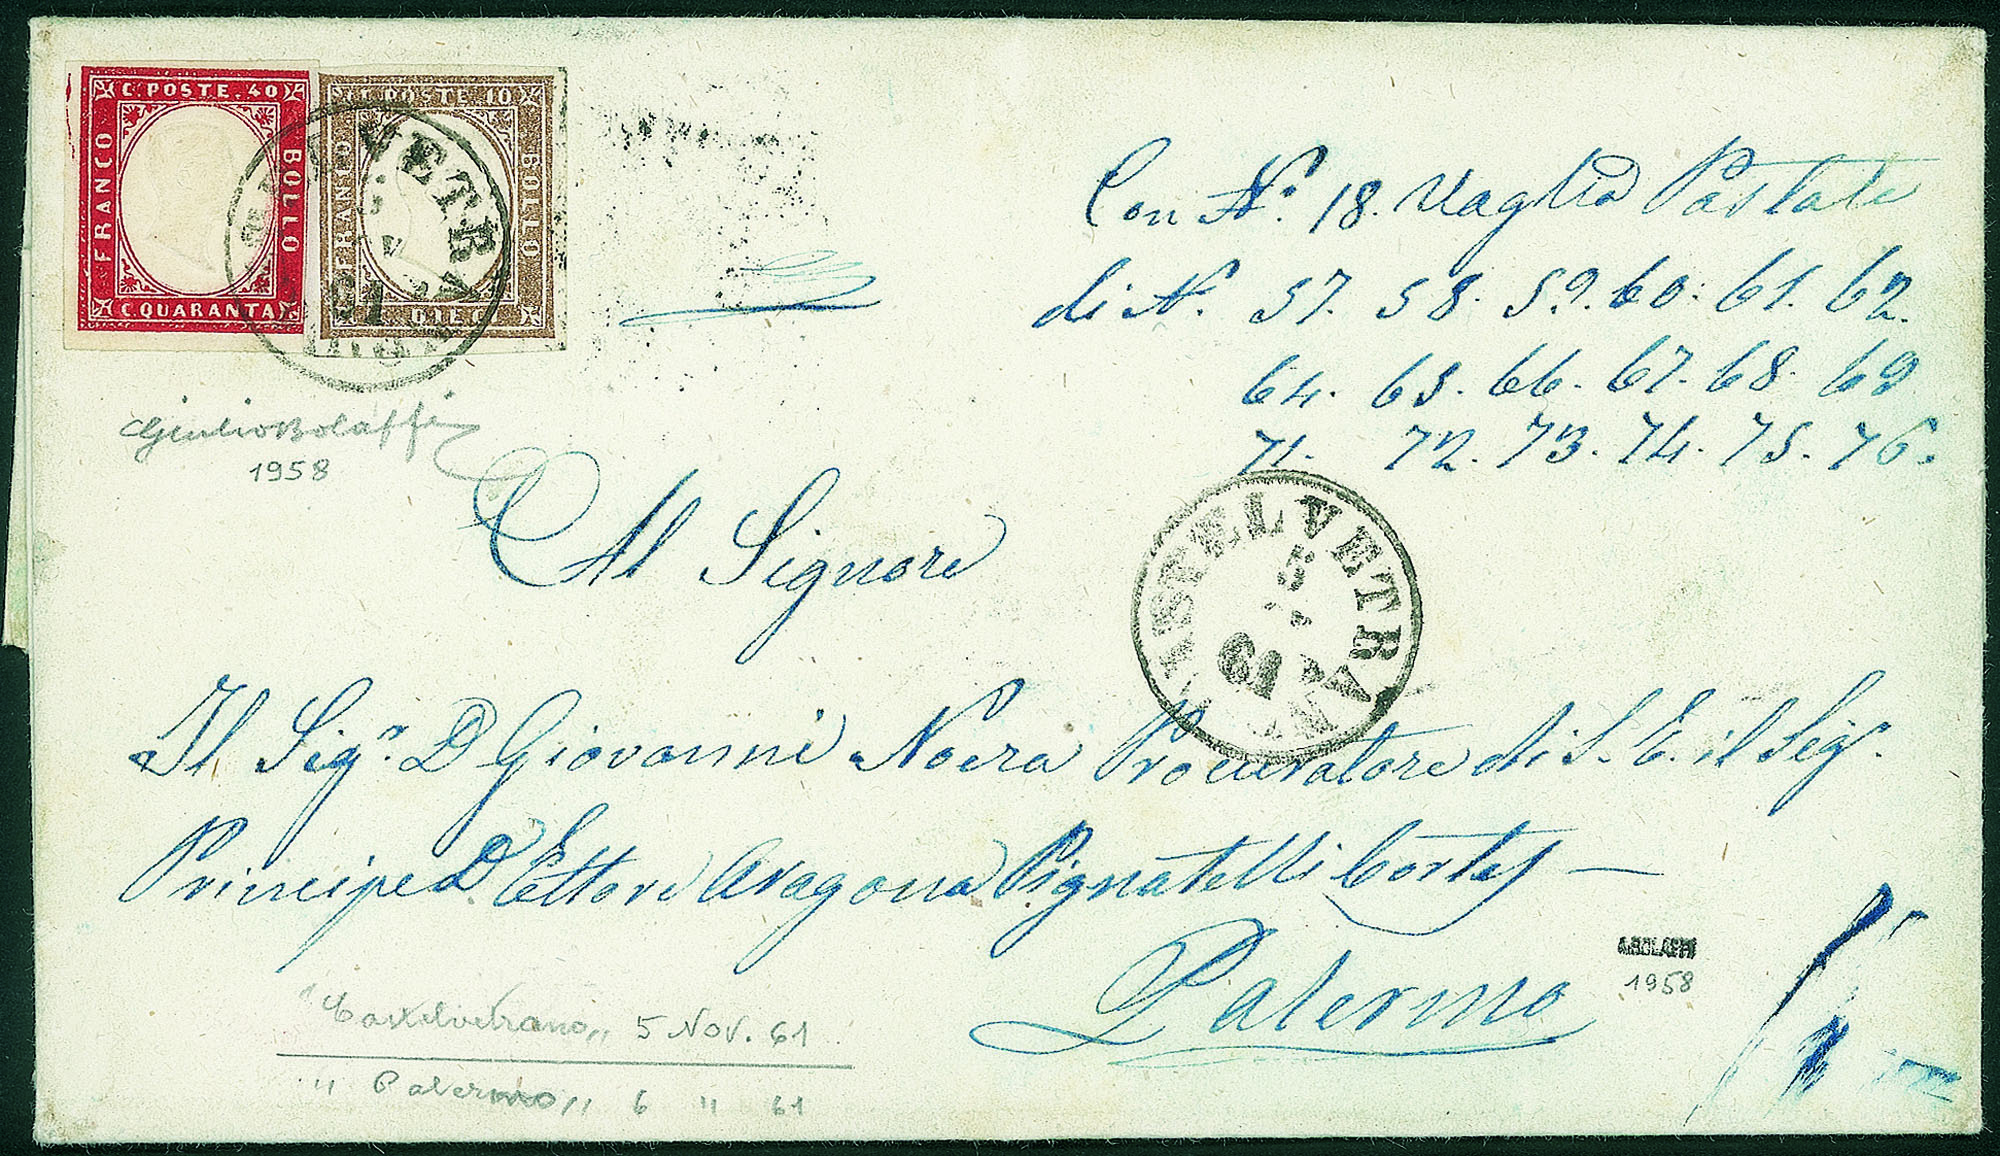 C. POSTE. 40
FRANCO
BOLLO
C. QUARANTA
C. POSTE. 10
FRANCO
BOLLO
C. DIECI
VETRA
61
Giulio Bolaffi
1958
Con N.º 18. Vaglia Postale
di N. 57. 58. 59. 60. 61. 62.
64. 65. 66. 67. 68. 69
71. 72. 73. 74. 75. 76.
CASTELVETRANO
5
61
Al Signore
Il Sig.r D Giovanni Noera Procuratore di S. E. il Sigr.
Principe D Ettore Aragona Pignatelli Cortes —
Palermo
A. BOLAFFI
1958
"Castelvetrano,, 5 NOV. 61
" Palermo,, 6 " 61